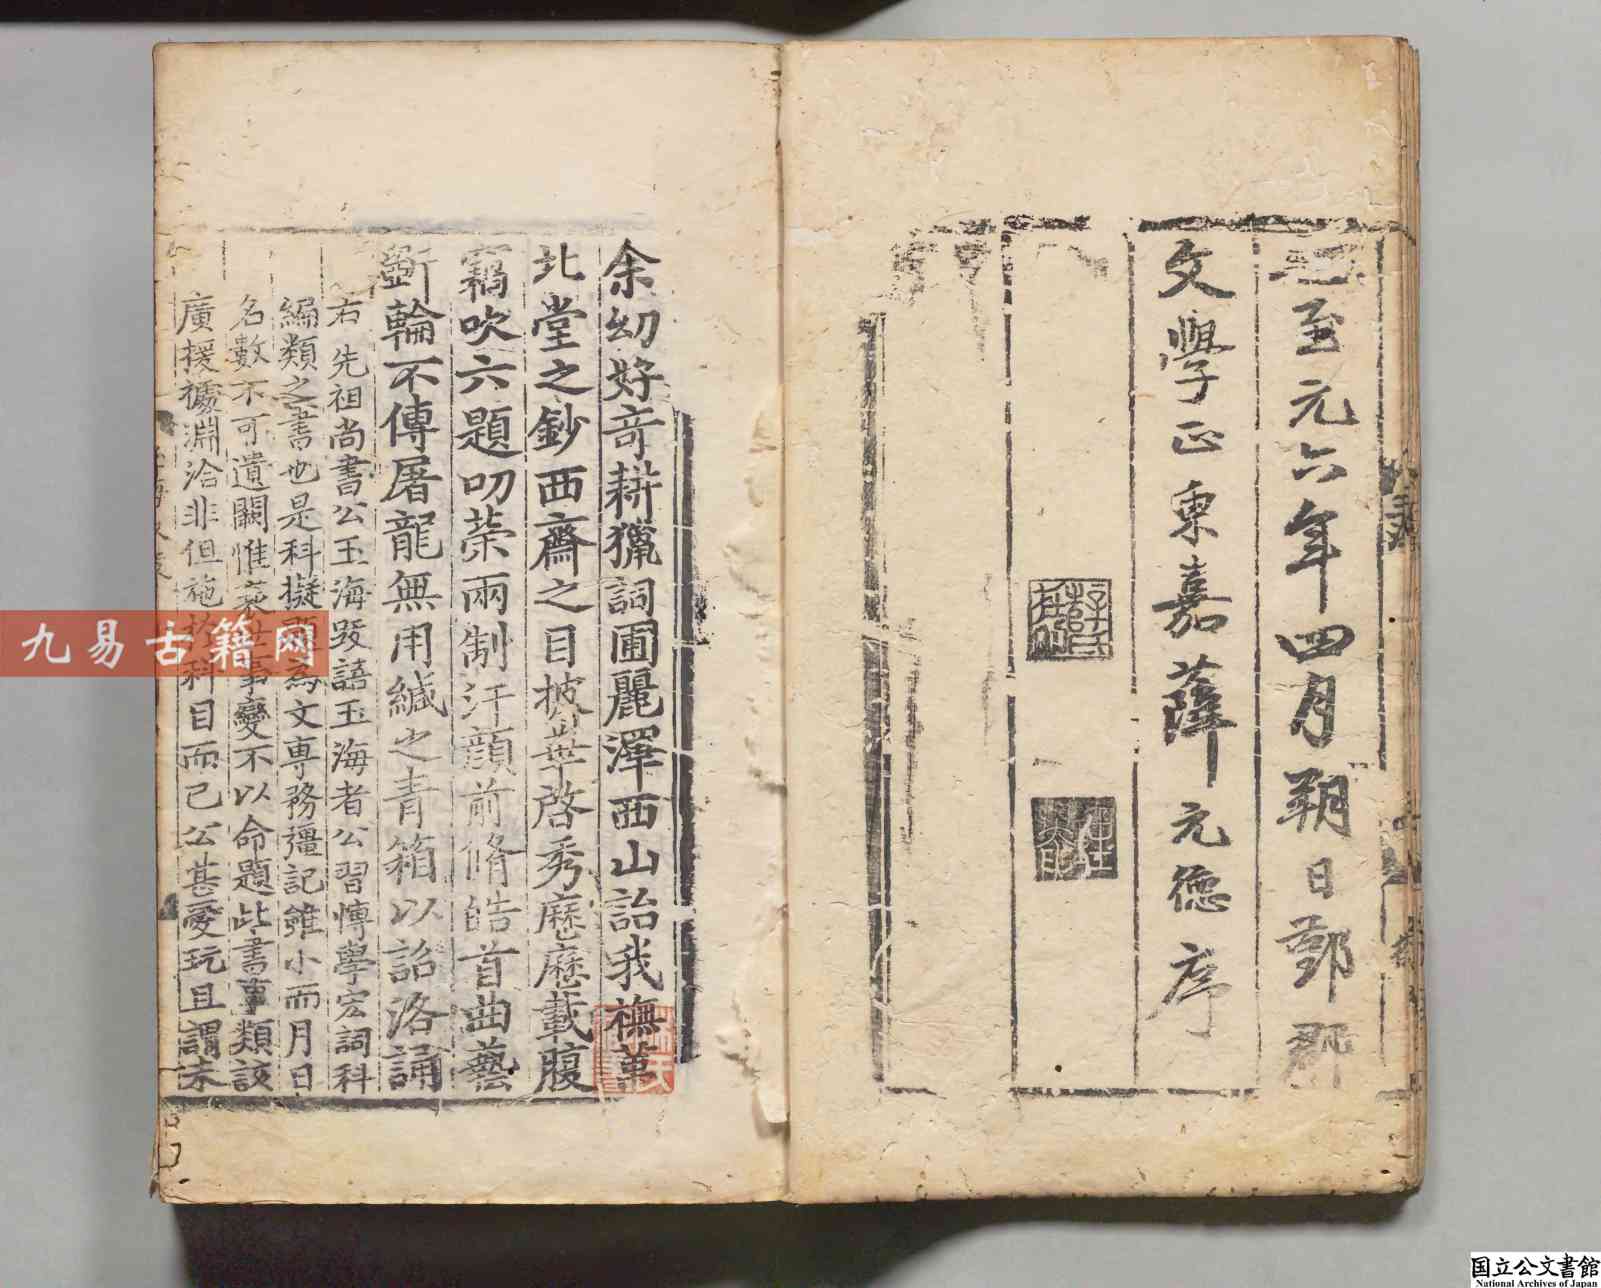 至元六年四月朔日鄞郡
文學正東嘉薛元德序
余幼好奇耕獵詞圃麗澤西山詒我橅萬
北堂之鈔西齋之目披華啓秀歷歷載腹
竊吹六題叨荣兩制汗顔前脩皓首曲藝
斵輪不傳屠龍無用緘之青箱以詔洛誦
右先祖尚書公玉海跋語玉海者公習愽學宏詞科
編類之書也是科擬題為文専務彊記雖小而月日
名數不可遺闕惟衰世事變不以命題此書事類該
廣援㩀淵洽非但施於科目而已公甚愛玩且謂未
九易古籍网
国立公文書館
National Archives of Japan